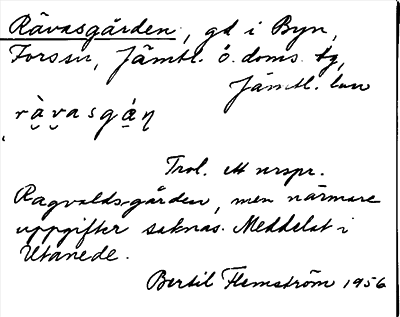 Rävasgården, gd i Byn,
Forssn, Jämtl. ö. doms. tg,
Jämtl. län
rà̯v̯asgá̯ṇ
Trol. ett urspr.
Ragvaldsgården, men närmare
uppgifter saknas. Meddelat i
Utanede.
Bertil Flemström 1956